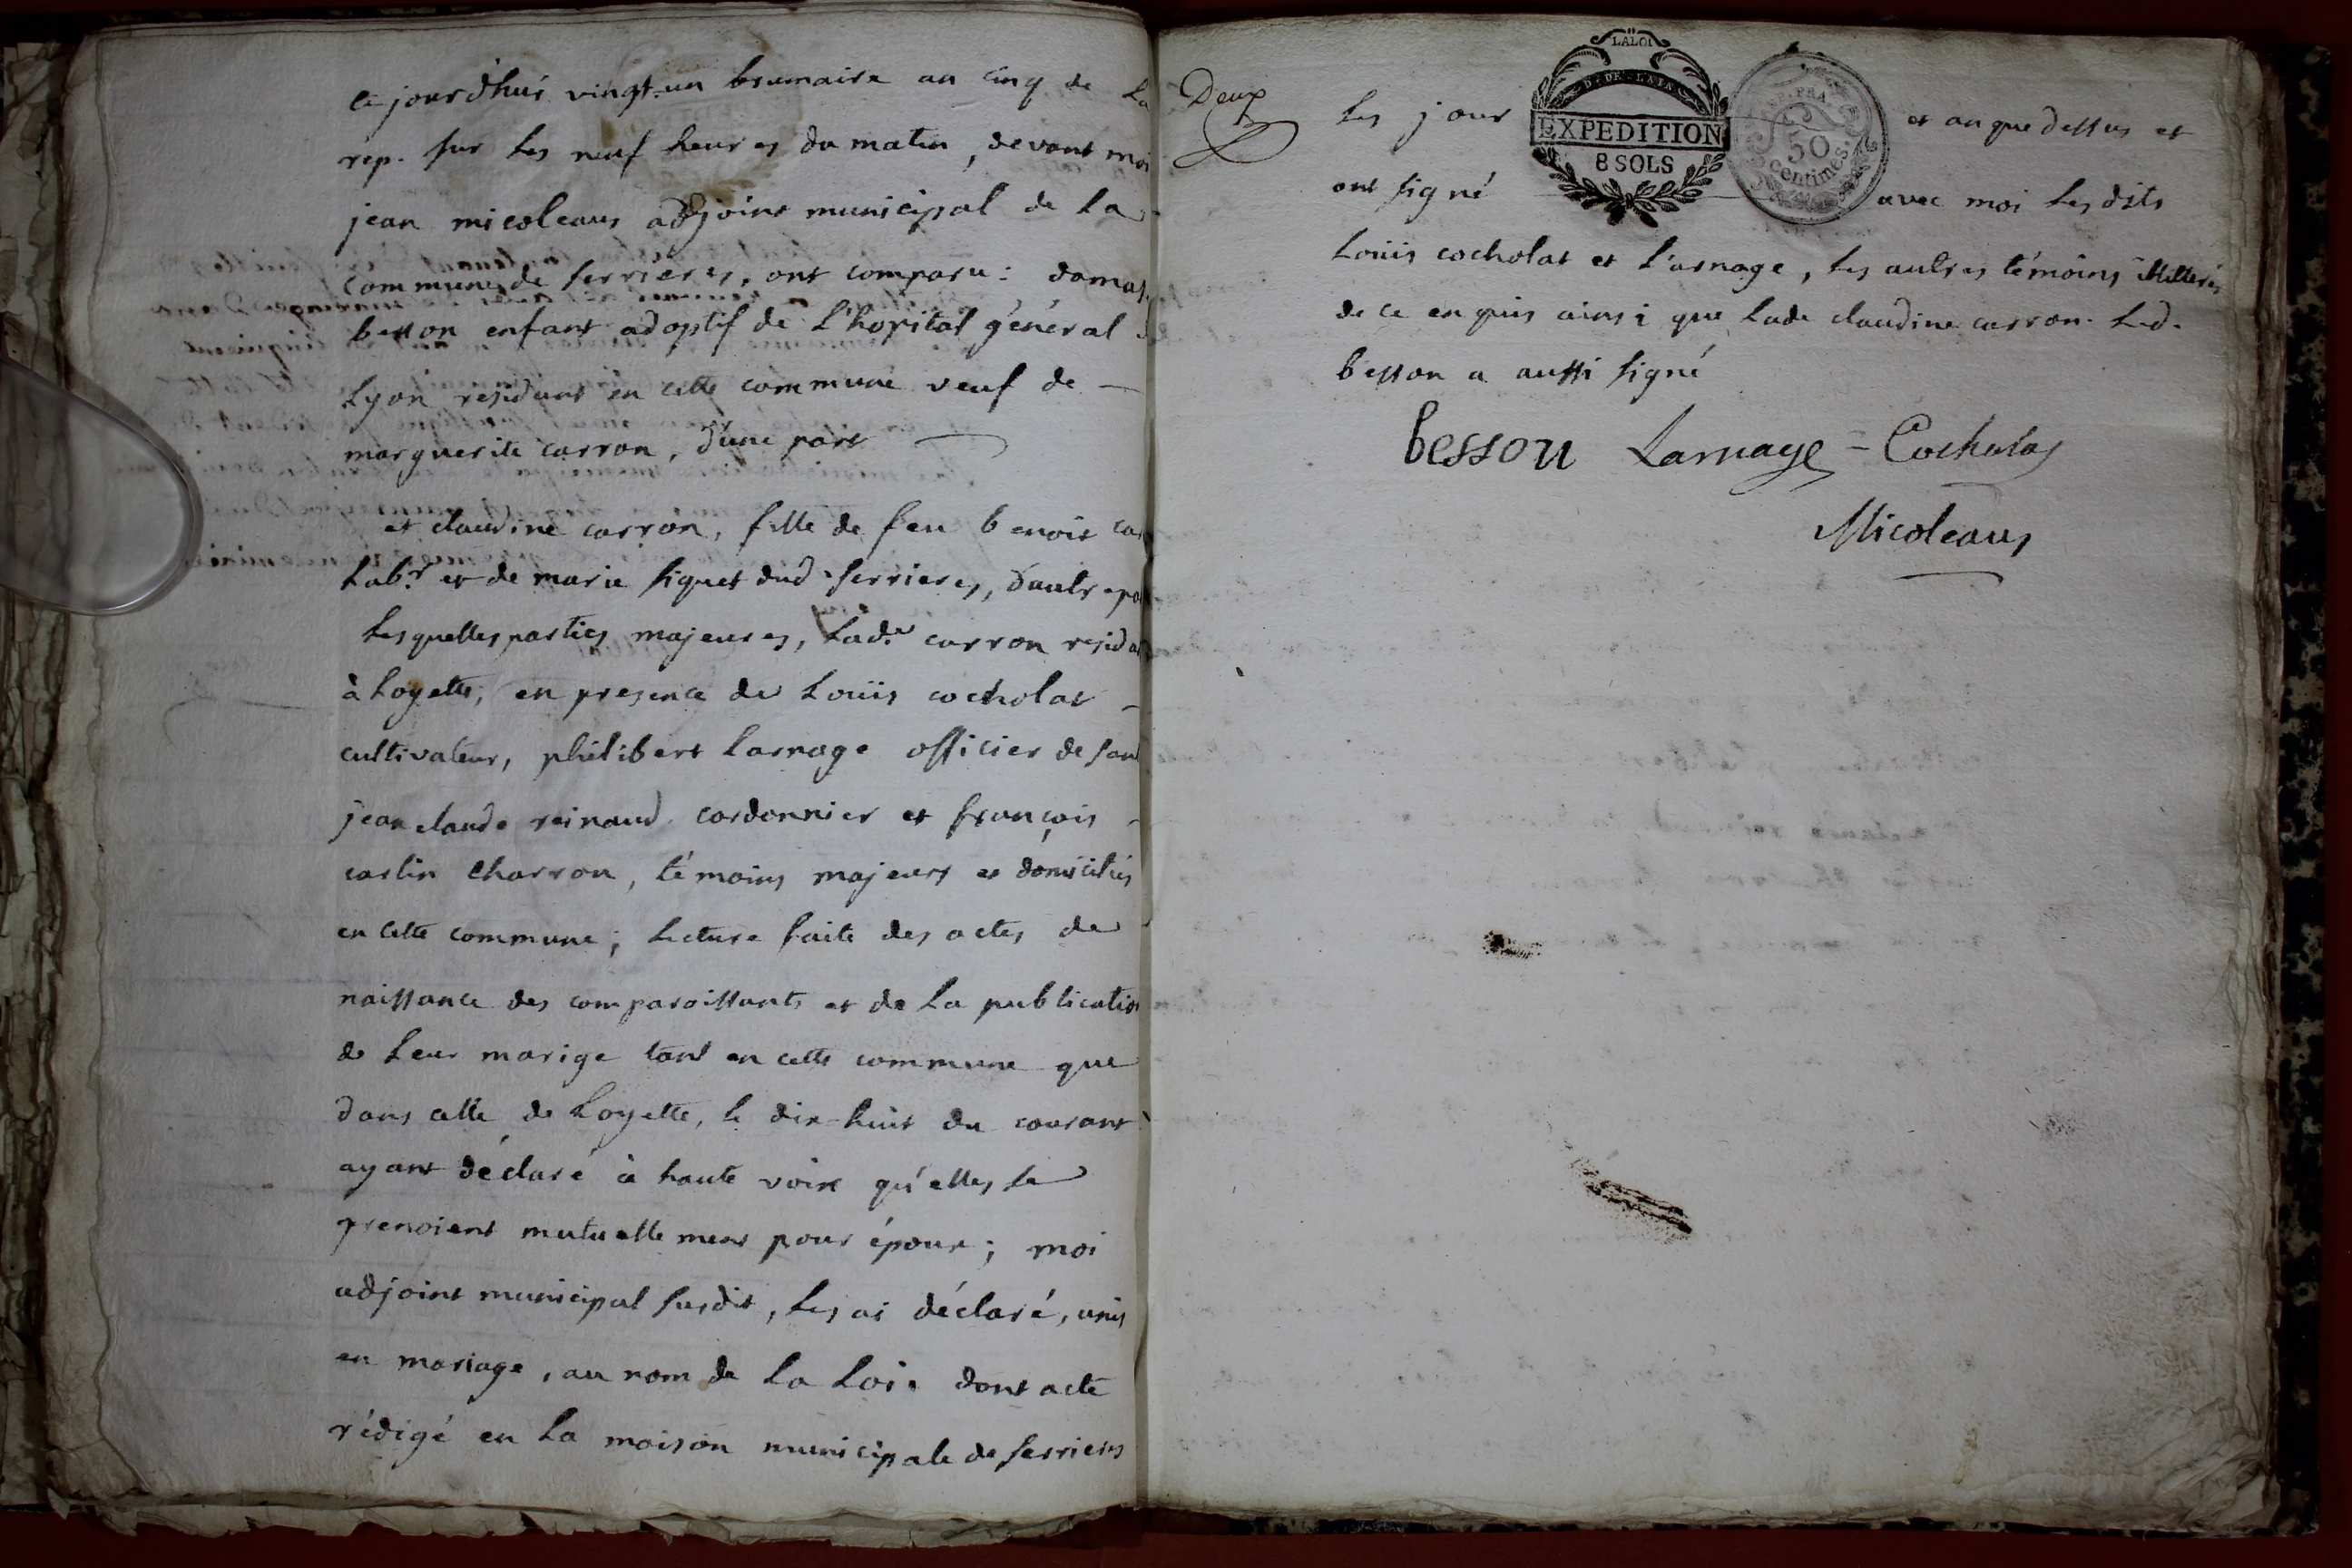 ce jourdhui vingt-un brumaire an cinq de La
rep. sur les neuf heures du matin, devant moi
jean micoleaus adjoint municipal de La
commune de serrieres, ont comparu: damas
besson enfant adoptif de L'hopital général
Lyon residant en cette commune veuf de —
marguerite carron, d'une part
et claudine carron, fille de feu benoit
Labr. et de marie siquet dud. serrieres, d'autre
Lesquelles parties majeures, Lade. carron
à Loyette, en presence de Louis cocholat
cultivateur, philibert Larnage officier de
jean claude reinaud cordonnier et françois
carlin charron, témoins majeurs et domiciliés
en cette commune; Lecture faite des actes de
naissance des comparoissants et de La publication
de Leur marige tant en cette commune que
dans celle de Loyette, le dix-huit du courant
ayant déclaré à haute voix qu'elles se
prenoient mutuellement pour époux; moi
adjoint municipal susdit, Les ai déclaré, unis
en mariage, au nom de La Loi. dont acte
rédigé en La maison municipale de serrieres
Deux
LA LOI
EXPEDITION
8 SOLS
50
Centimes.
Les jour et an que dessus et
ont signé avec moi Les dits
Louis cocholat et L'arnage, Les autres témoins illiterés
de ce enquis ainsi que Lade claudine carron. Led.
besson a aussi signé
besson Larnage - Cocholas
Micoleaus